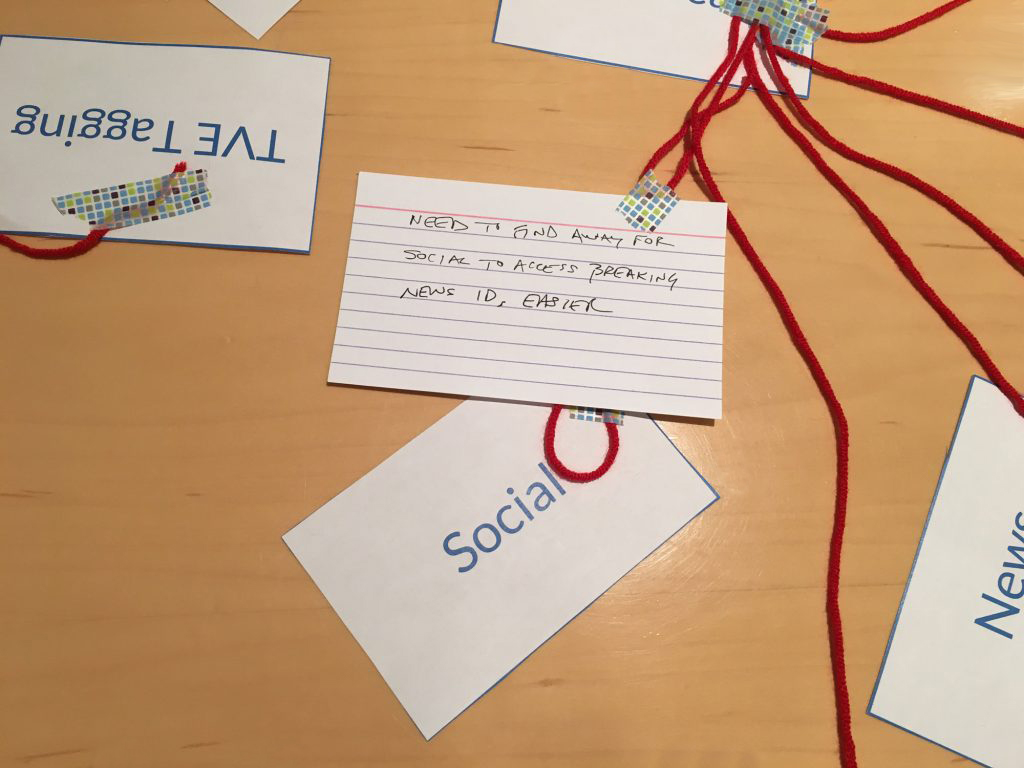 TVE Tagging
NEED TO FIND AWAY FOR
SOCIAL TO ACCESS BREAKING
NEWS ID, EASIER
Social
News